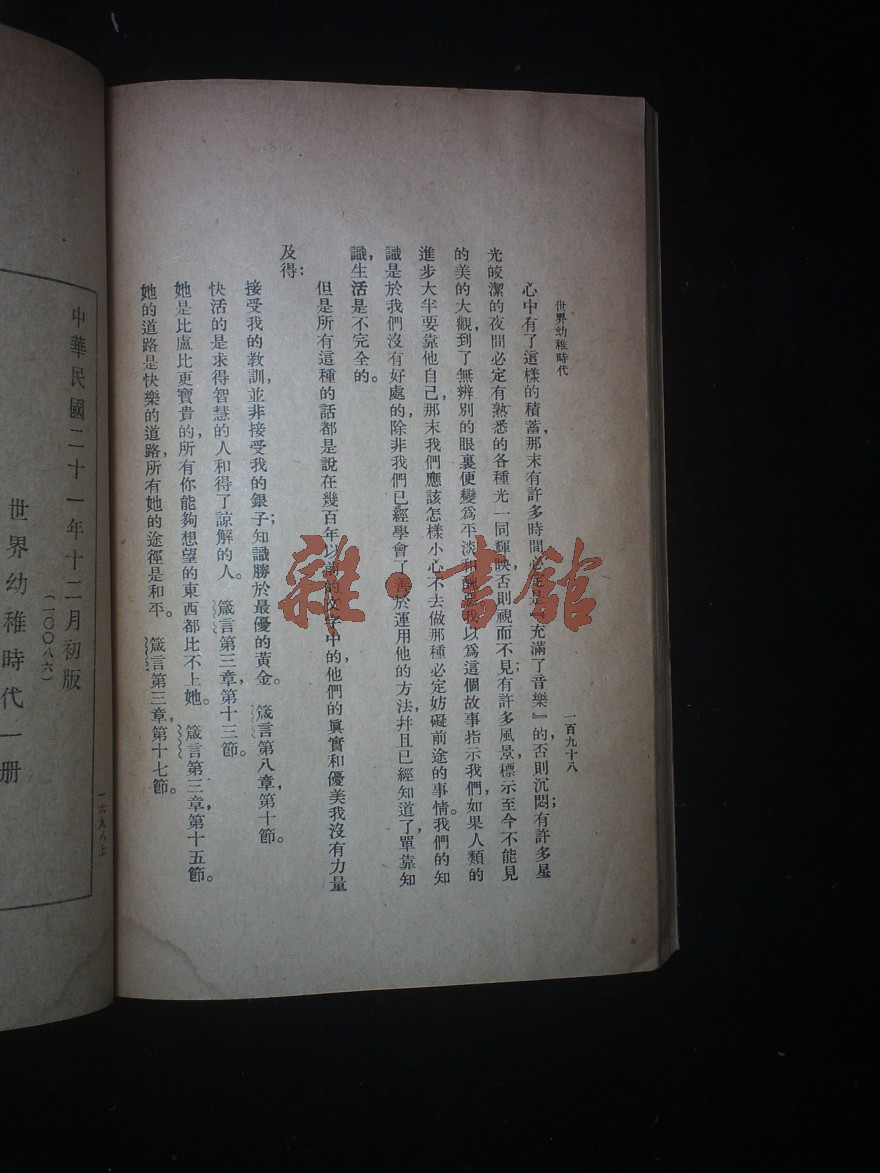 世界幼稚時代
一百九十八
心中有了這樣的積蓄,那末有許多時間必定是『充滿了音樂』的,否則沉悶;有許多星
光皎潔的夜間必定有熟悉的各種光一同輝映,否則視而不見;有許多風景,標示至今不能見
的美的大觀,到了無辨別的眼裏便變爲平淡和醜惡。我以爲這個故事指示我們,如果人類的
進步大半要靠他自己,那末我們應該怎樣小心不去做那種必定妨礙前途的事情。我們的知
識是於我們沒有好處的,除非我們已經學會了善於運用他的方法,幷且已經知道了,單靠知
識,生活是不完全的。
但是所有這種的話都是說在幾百年以前的文字中的,他們的眞實和優美我沒有力量
及得:
接受我的教訓,並非接受我的銀子;知識勝於最優的黃金。 箴言第八章,第十節。
快活的是求得智慧的人和得了諒解的人。 箴言第三章,第十三節。
她是比盧比更寶貴的,所有你能夠想望的東西都比不上她。 箴言第三章,第十五節。
她的道路是快樂的道路,所有她的途徑是和平。 箴言第三章,第十七節。
中華民國二十一年十二月初版
(一〇〇八六)
世界幼稚時代一册
一六九八上
雜·書館